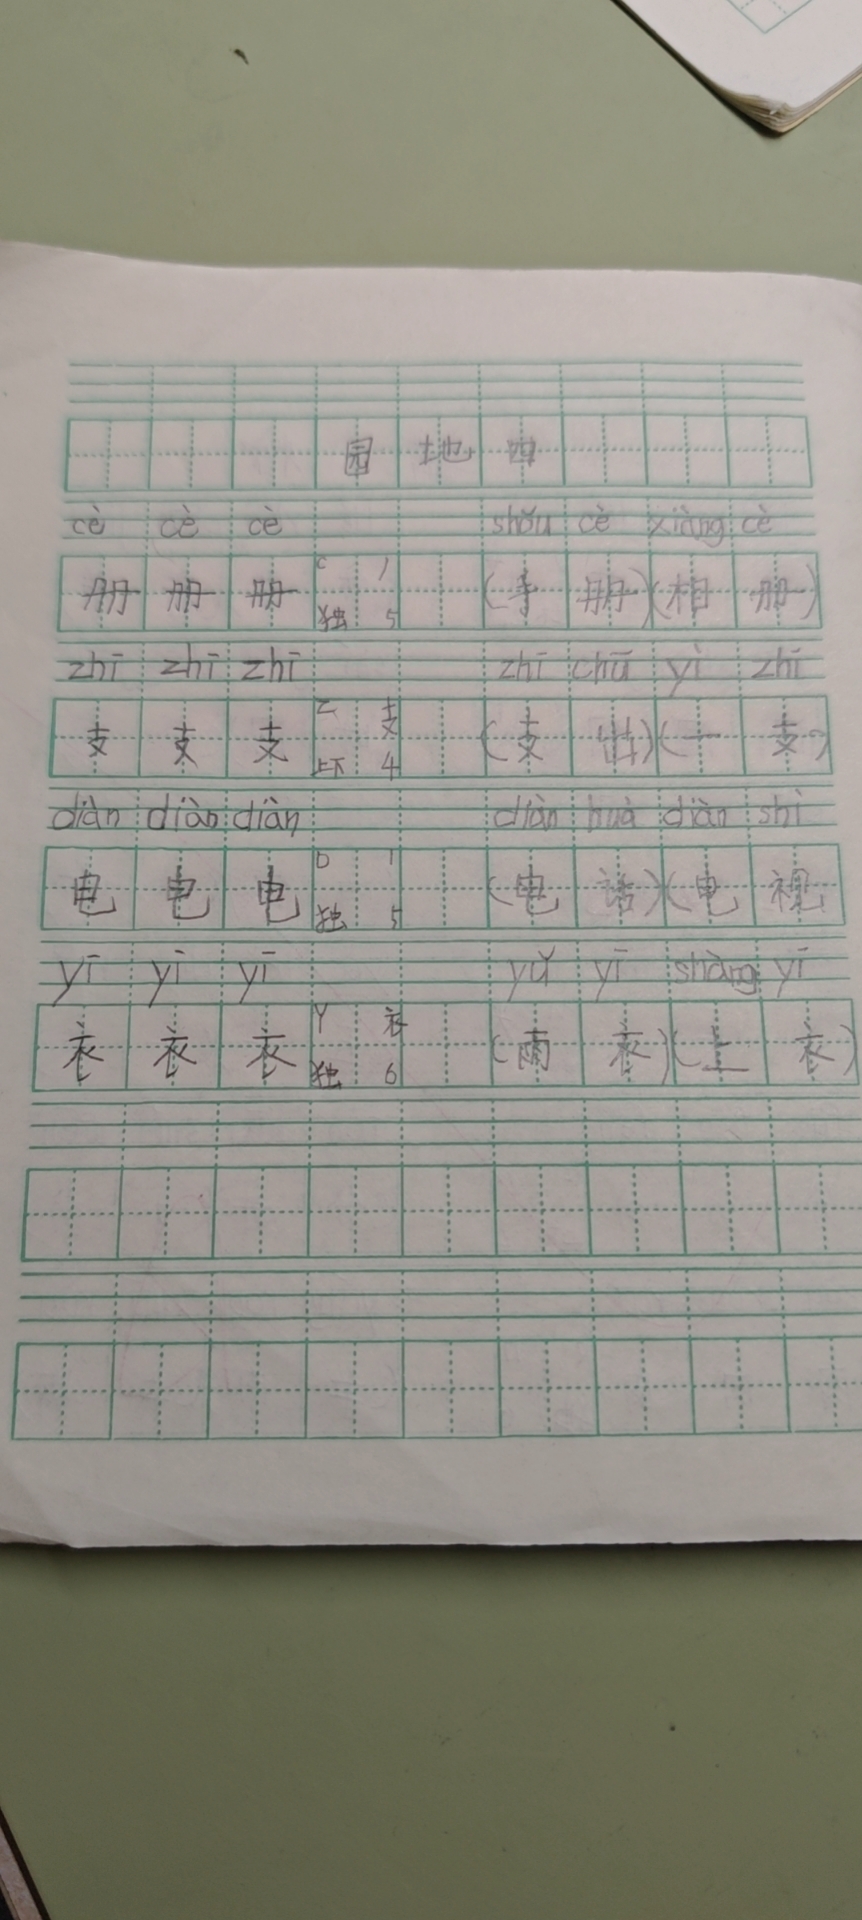 园地四
cè cè cè shǒu cè xiàng cè
册 册 册 C 丨 独 5 (手册)(相册)
zhī zhī zhī zhī chū yì zhī
支 支 支 Z 支 上下 4 (支出)(一支)
diàn diàn diàn diàn huà diàn shì
电 电 电 D 丨 独 5 (电话)(电视)
yī yī yī yǔ yī shàng yī
衣 衣 衣 Y 衣 独 6 (雨衣)(上衣)